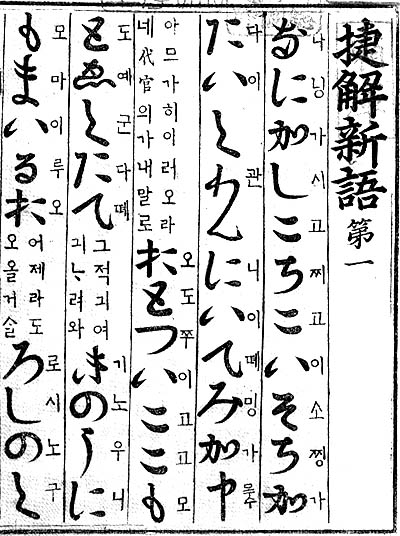 捷解新語 第一
なにかしこちこいそちか
나닝가시고찌고이소찡가
たいくわんにいてみか申
다이관니이떼밍가
아므가히이러오라
네代官의가내말로
おとついここも
오도쭈이고고모
とゑくたて
도예군다떼
그적긔여
긔ᄂᆞ려와
きのうに
기노우니
もまいるお
모마이루오
어제라도
오올거슬
ろしのく
로시노구